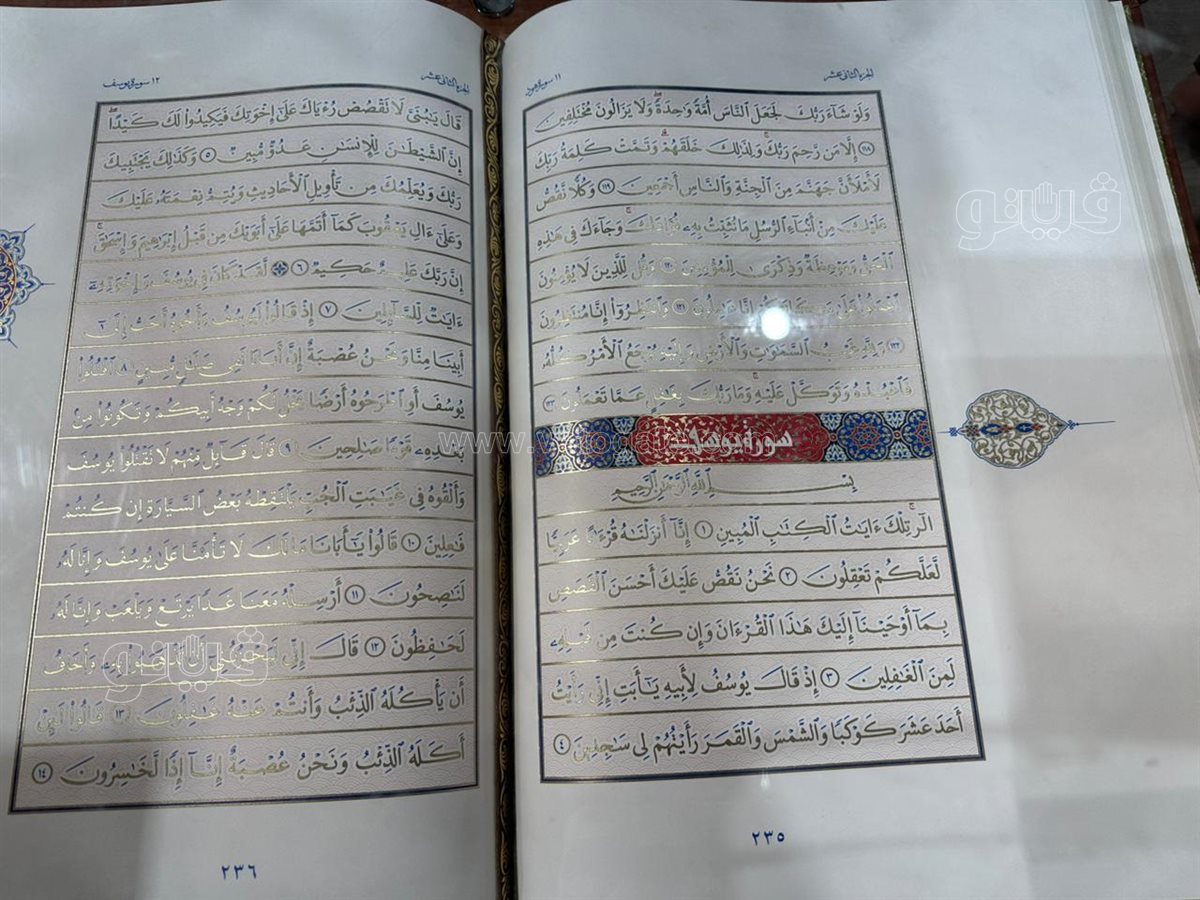 الجزء الثاني عشر
١١ سورة هود
وَلَوْ شَآءَ رَبُّكَ لَجَعَلَ ٱلنَّاسَ أُمَّةً وَٰحِدَةً ۖ وَلَا يَزَالُونَ مُخْتَلِفِينَ
١١٨ إِلَّا مَن رَّحِمَ رَبُّكَ ۚ وَلِذَٰلِكَ خَلَقَهُمْ ۗ وَتَمَّتْ كَلِمَةُ رَبِّكَ
لَأَمْلَأَنَّ جَهَنَّمَ مِنَ ٱلْجِنَّةِ وَٱلنَّاسِ أَجْمَعِينَ ١١٩ وَكُلًّا نَّقُصُّ
عَلَيْكَ مِنْ أَنۢبَآءِ ٱلرُّسُلِ مَا نُثَبِّتُ بِهِۦ فُؤَادَكَ ۚ وَجَآءَكَ فِى هَٰذِهِ
ٱلْحَقُّ وَمَوْعِظَةٌ وَذِكْرَىٰ لِلْمُؤْمِنِينَ ١٢٠ وَقُل لِّلَّذِينَ لَا يُؤْمِنُونَ
ٱعْمَلُوا۟ عَلَىٰ مَكَانَتِكُمْ إِنَّا عَٰمِلُونَ ١٢١ وَٱنتَظِرُوٓا۟ إِنَّا مُنتَظِرُونَ
١٢٢ وَلِلَّهِ غَيْبُ ٱلسَّمَٰوَٰتِ وَٱلْأَرْضِ وَإِلَيْهِ يُرْجَعُ ٱلْأَمْرُ كُلُّهُۥ
فَٱعْبُدْهُ وَتَوَكَّلْ عَلَيْهِ ۚ وَمَا رَبُّكَ بِغَٰفِلٍ عَمَّا تَعْمَلُونَ ١٢٣
سورة يوسف
بِسْمِ ٱللَّهِ ٱلرَّحْمَٰنِ ٱلرَّحِيمِ
الٓر ۚ تِلْكَ ءَايَٰتُ ٱلْكِتَٰبِ ٱلْمُبِينِ ١ إِنَّآ أَنزَلْنَٰهُ قُرْءَٰنًا عَرَبِيًّا
لَّعَلَّكُمْ تَعْقِلُونَ ٢ نَحْنُ نَقُصُّ عَلَيْكَ أَحْسَنَ ٱلْقَصَصِ
بِمَآ أَوْحَيْنَآ إِلَيْكَ هَٰذَا ٱلْقُرْءَانَ وَإِن كُنتَ مِن قَبْلِهِۦ
لَمِنَ ٱلْغَٰفِلِينَ ٣ إِذْ قَالَ يُوسُفُ لِأَبِيهِ يَٰٓأَبَتِ إِنِّى رَأَيْتُ
أَحَدَ عَشَرَ كَوْكَبًا وَٱلشَّمْسَ وَٱلْقَمَرَ رَأَيْتُهُمْ لِى سَٰجِدِينَ ٤
٢٣٥
الجزء الثاني عشر
١٢ سورة يوسف
قَالَ يَٰبُنَىَّ لَا تَقْصُصْ رُءْيَاكَ عَلَىٰٓ إِخْوَتِكَ فَيَكِيدُوا۟ لَكَ كَيْدًا ۖ
إِنَّ ٱلشَّيْطَٰنَ لِلْإِنسَٰنِ عَدُوٌّ مُّبِينٌ ٥ وَكَذَٰلِكَ يَجْتَبِيكَ
رَبُّكَ وَيُعَلِّمُكَ مِن تَأْوِيلِ ٱلْأَحَادِيثِ وَيُتِمُّ نِعْمَتَهُۥ عَلَيْكَ
وَعَلَىٰٓ ءَالِ يَعْقُوبَ كَمَآ أَتَمَّهَا عَلَىٰٓ أَبَوَيْكَ مِن قَبْلُ إِبْرَٰهِيمَ وَإِسْحَٰقَ ۚ
إِنَّ رَبَّكَ عَلِيمٌ حَكِيمٌ ٦ لَّقَدْ كَانَ فِى يُوسُفَ وَإِخْوَتِهِۦٓ
ءَايَٰتٌ لِّلسَّآئِلِينَ ٧ إِذْ قَالُوا۟ لَيُوسُفُ وَأَخُوهُ أَحَبُّ إِلَىٰٓ
أَبِينَا مِنَّا وَنَحْنُ عُصْبَةٌ إِنَّ أَبَانَا لَفِى ضَلَٰلٍ مُّبِينٍ ٨ ٱقْتُلُوا۟
يُوسُفَ أَوِ ٱطْرَحُوهُ أَرْضًا يَخْلُ لَكُمْ وَجْهُ أَبِيكُمْ وَتَكُونُوا۟ مِنۢ
بَعْدِهِۦ قَوْمًا صَٰلِحِينَ ٩ قَالَ قَآئِلٌ مِّنْهُمْ لَا تَقْتُلُوا۟ يُوسُفَ
وَأَلْقُوهُ فِى غَيَٰبَتِ ٱلْجُبِّ يَلْتَقِطْهُ بَعْضُ ٱلسَّيَّارَةِ إِن كُنتُمْ
فَٰعِلِينَ ١٠ قَالُوا۟ يَٰٓأَبَانَا مَا لَكَ لَا تَأْمَ۫نَّا عَلَىٰ يُوسُفَ وَإِنَّا لَهُۥ
لَنَٰصِحُونَ ١١ أَرْسِلْهُ مَعَنَا غَدًا يَرْتَعْ وَيَلْعَبْ وَإِنَّا لَهُۥ
لَحَٰفِظُونَ ١٢ قَالَ إِنِّى لَيَحْزُنُنِىٓ أَن تَذْهَبُوا۟ بِهِۦ وَأَخَافُ
أَن يَأْكُلَهُ ٱلذِّئْبُ وَأَنتُمْ عَنْهُ غَٰفِلُونَ ١٣ قَالُوا۟ لَئِنْ
أَكَلَهُ ٱلذِّئْبُ وَنَحْنُ عُصْبَةٌ إِنَّآ إِذًا لَّخَٰسِرُونَ ١٤
٢٣٦